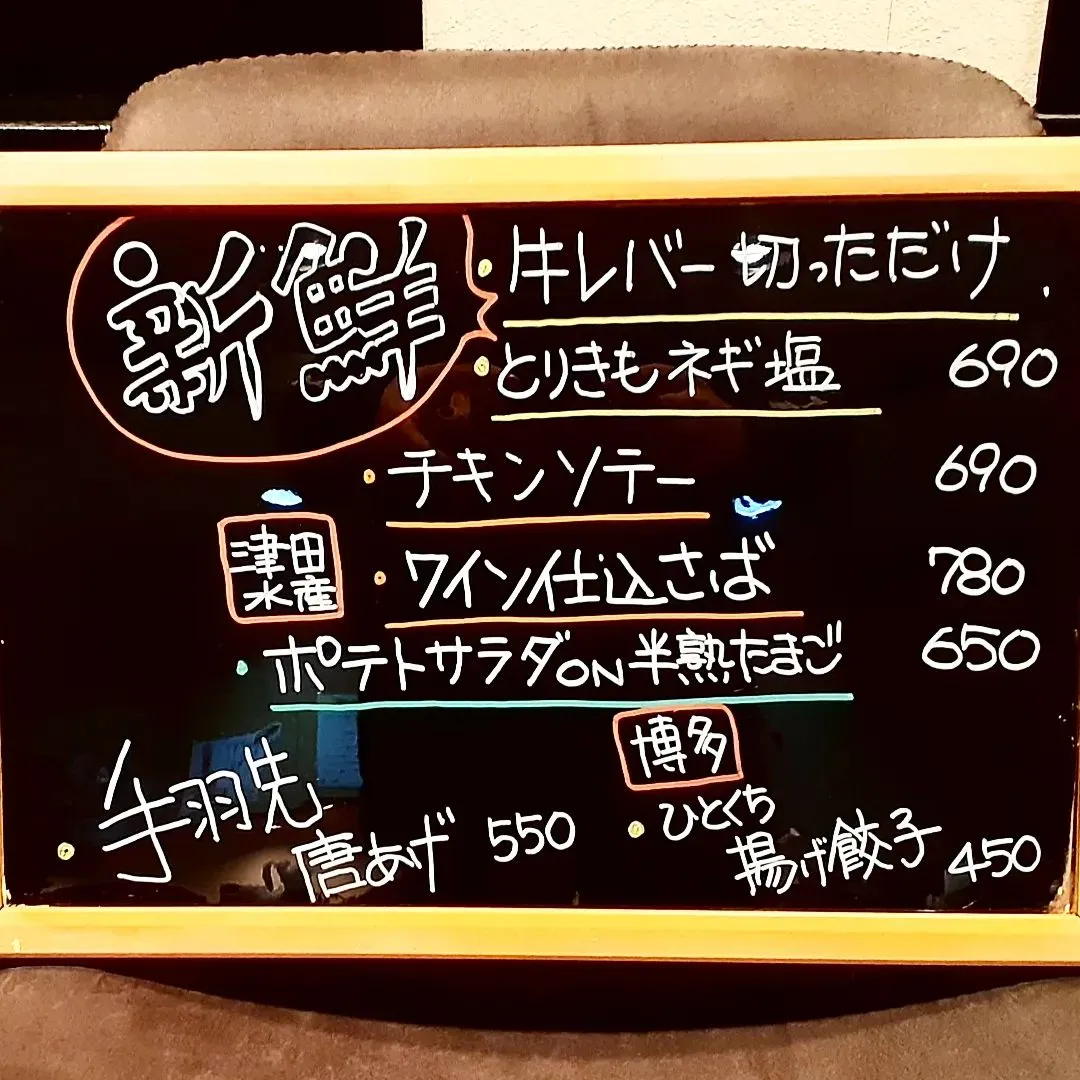 新鮮
・牛レバー切っただけ.
・とりきもネギ塩 690
・チキンソテー 690
津田
水産
・ワイン仕込さば 780
・ポテトサラダON半熟たまご 650
・手羽先
唐あげ 550
博多
・ひとくち
揚げ餃子 450